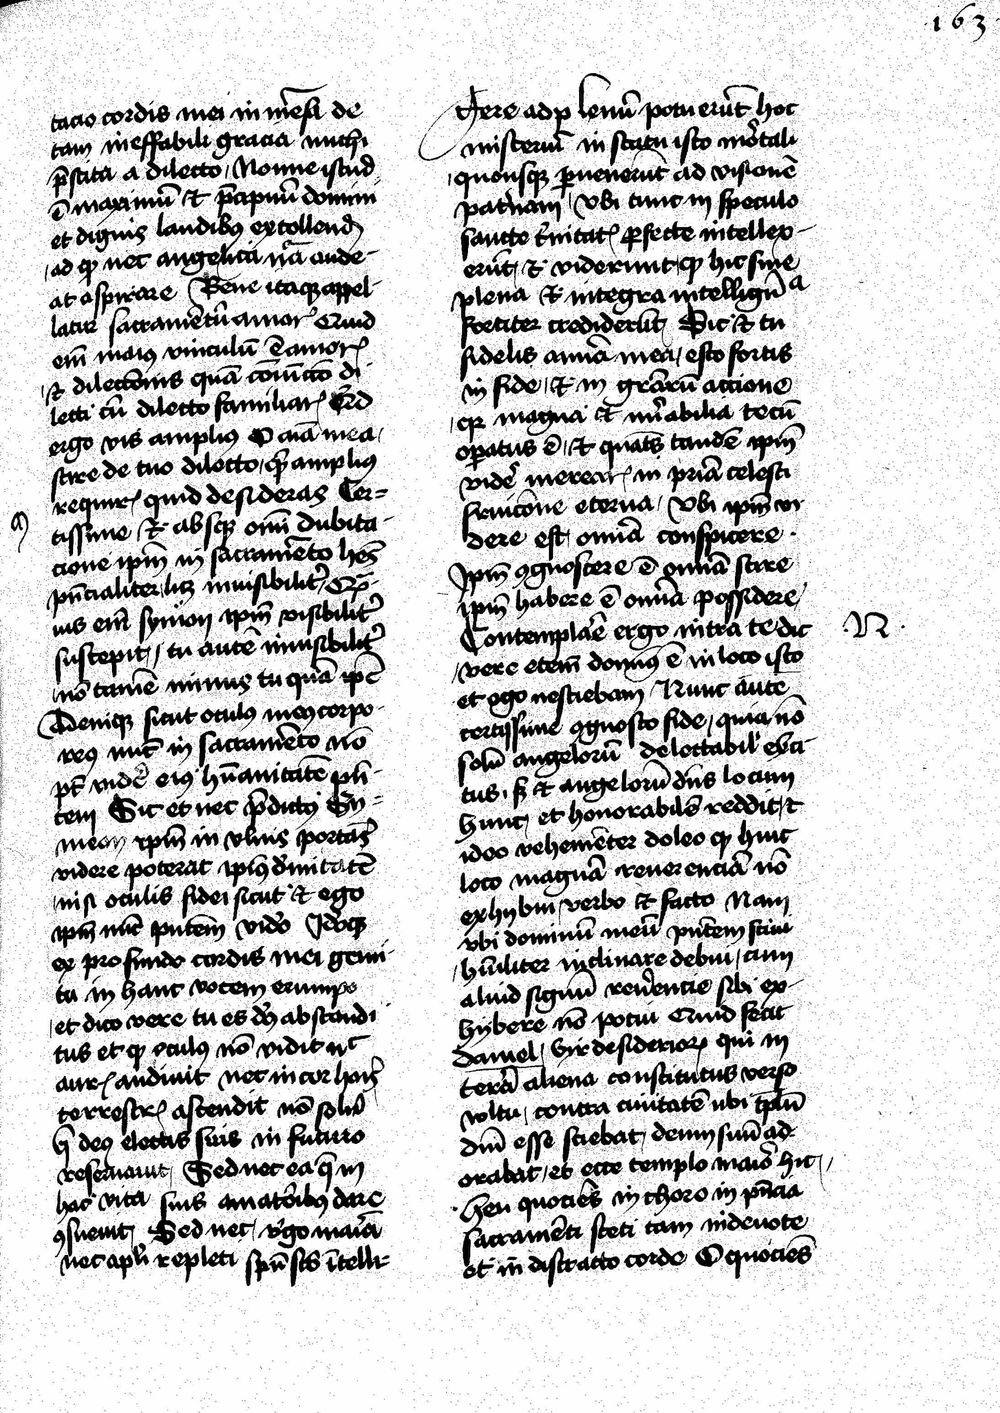 163
tacio cordis mei in mēsa de
tam ineffabili gracia michi
p̄stita a dilecto / Nonne istud
ē maximū et p̄cipuū domini
et dignis laudibus extollend
ad qd nec angelica nā aude-
at aspirare Bene itaque appel-
latur sacramētū amoris Quid
em̄ maius vinculū ē amoris
et dilectōnis quā coniūcto di
lecti cū dilecto familiaris Quid
ergo vis amplius O aīa mea
scire de tuo dilecto, qd amplius
requiris quid desideras Cer-
tissime, et absque om̄i dubita-
cione ipm̄ in sacramēto habes
pn̄cialiter licet inuisibiliter
ius em̄ symon ipm̄ visibiliter
suscepit, tu autē inuisibiliter
nō tamē minus tu quā ipse
Deniqz sicut oculus meus corpo-
reus nūc in sacramēto nō
pt̄ videre eius hūanitatē pn̄-
tem Sic et nec p̄dictus Sy-
meon ipm̄ in vlnis portans
videre poterat ipius diuinitatē
nisi oculis fidei sicut et ego
ipm̄ nūc pn̄tem video Ideoqz
ex profundo cordis mei gemi-
tu in hanc vocem erumpo
et dico vere tu es ds̄ abscondi
tus et qd oculus nō vidit nec
auris audiuit nec in cor hoīs
terrestris ascendit nō solū
qd deus electis suis in futuro
reseruauit, Sed nec ea que in
hac vita suis amatoribus dare
9sueuit, Sed nec virgo maria
nec apli repleti spū scōītelli-
gere ad plenū potuerūt hoc
misteriū in statu isto mortali
quousqz peruenerūt ad visionē
paternam, Vbi tunc in speculo
sancte trinitatis perfecte intellex-
erūt, et viderunt qd hic sine
plena et integra intelligēcia
fortiter crediderūt, Sic et tu
fidelis anima mea, esto fortis
in fide, et in gratiarū actione
quia magna et mirabilia tecū
operatus ē, et quatenus tandē ipm̄
videre merearis in patria celesti
fruicōne eterna, Vbi ipm̄ vi-
dere est omnia conspicere.
Ipm̄ 9gnoscere ē omnia scire
ipm̄ habere ē omnia possidere
Contemplare ergo intra te dic
vere etem̄ dominus ē in loco isto
et ego nesciebam Nunc autē
certissime 9gnosco fide, quia nō
solū angelorū delectabilis
tus, sed et angelorū dn̄s locum
hunc, et honorabilē reddit, et
ideo vehemēter doleo qd huic
loco magnā reuerenciā nō
exhybui verbo et facto Nam
vbi dominū meū pn̄tem sciui
humiliter inclinare debui, cum
aliud signū reuerencie sibi ex-
hybere nō potui Quid fecit
Daniel, Vir desideriorum qui in
terra aliena constitutus verso
vultu, contra ciuitatē ubi templū
dn̄i esse sciebat, deum suū ad-
orabat, et ecce templo maior hic
heu quociēs in choro in pn̄cia
sacramēti steti tam indeuote
et in distracto corde O quociēs